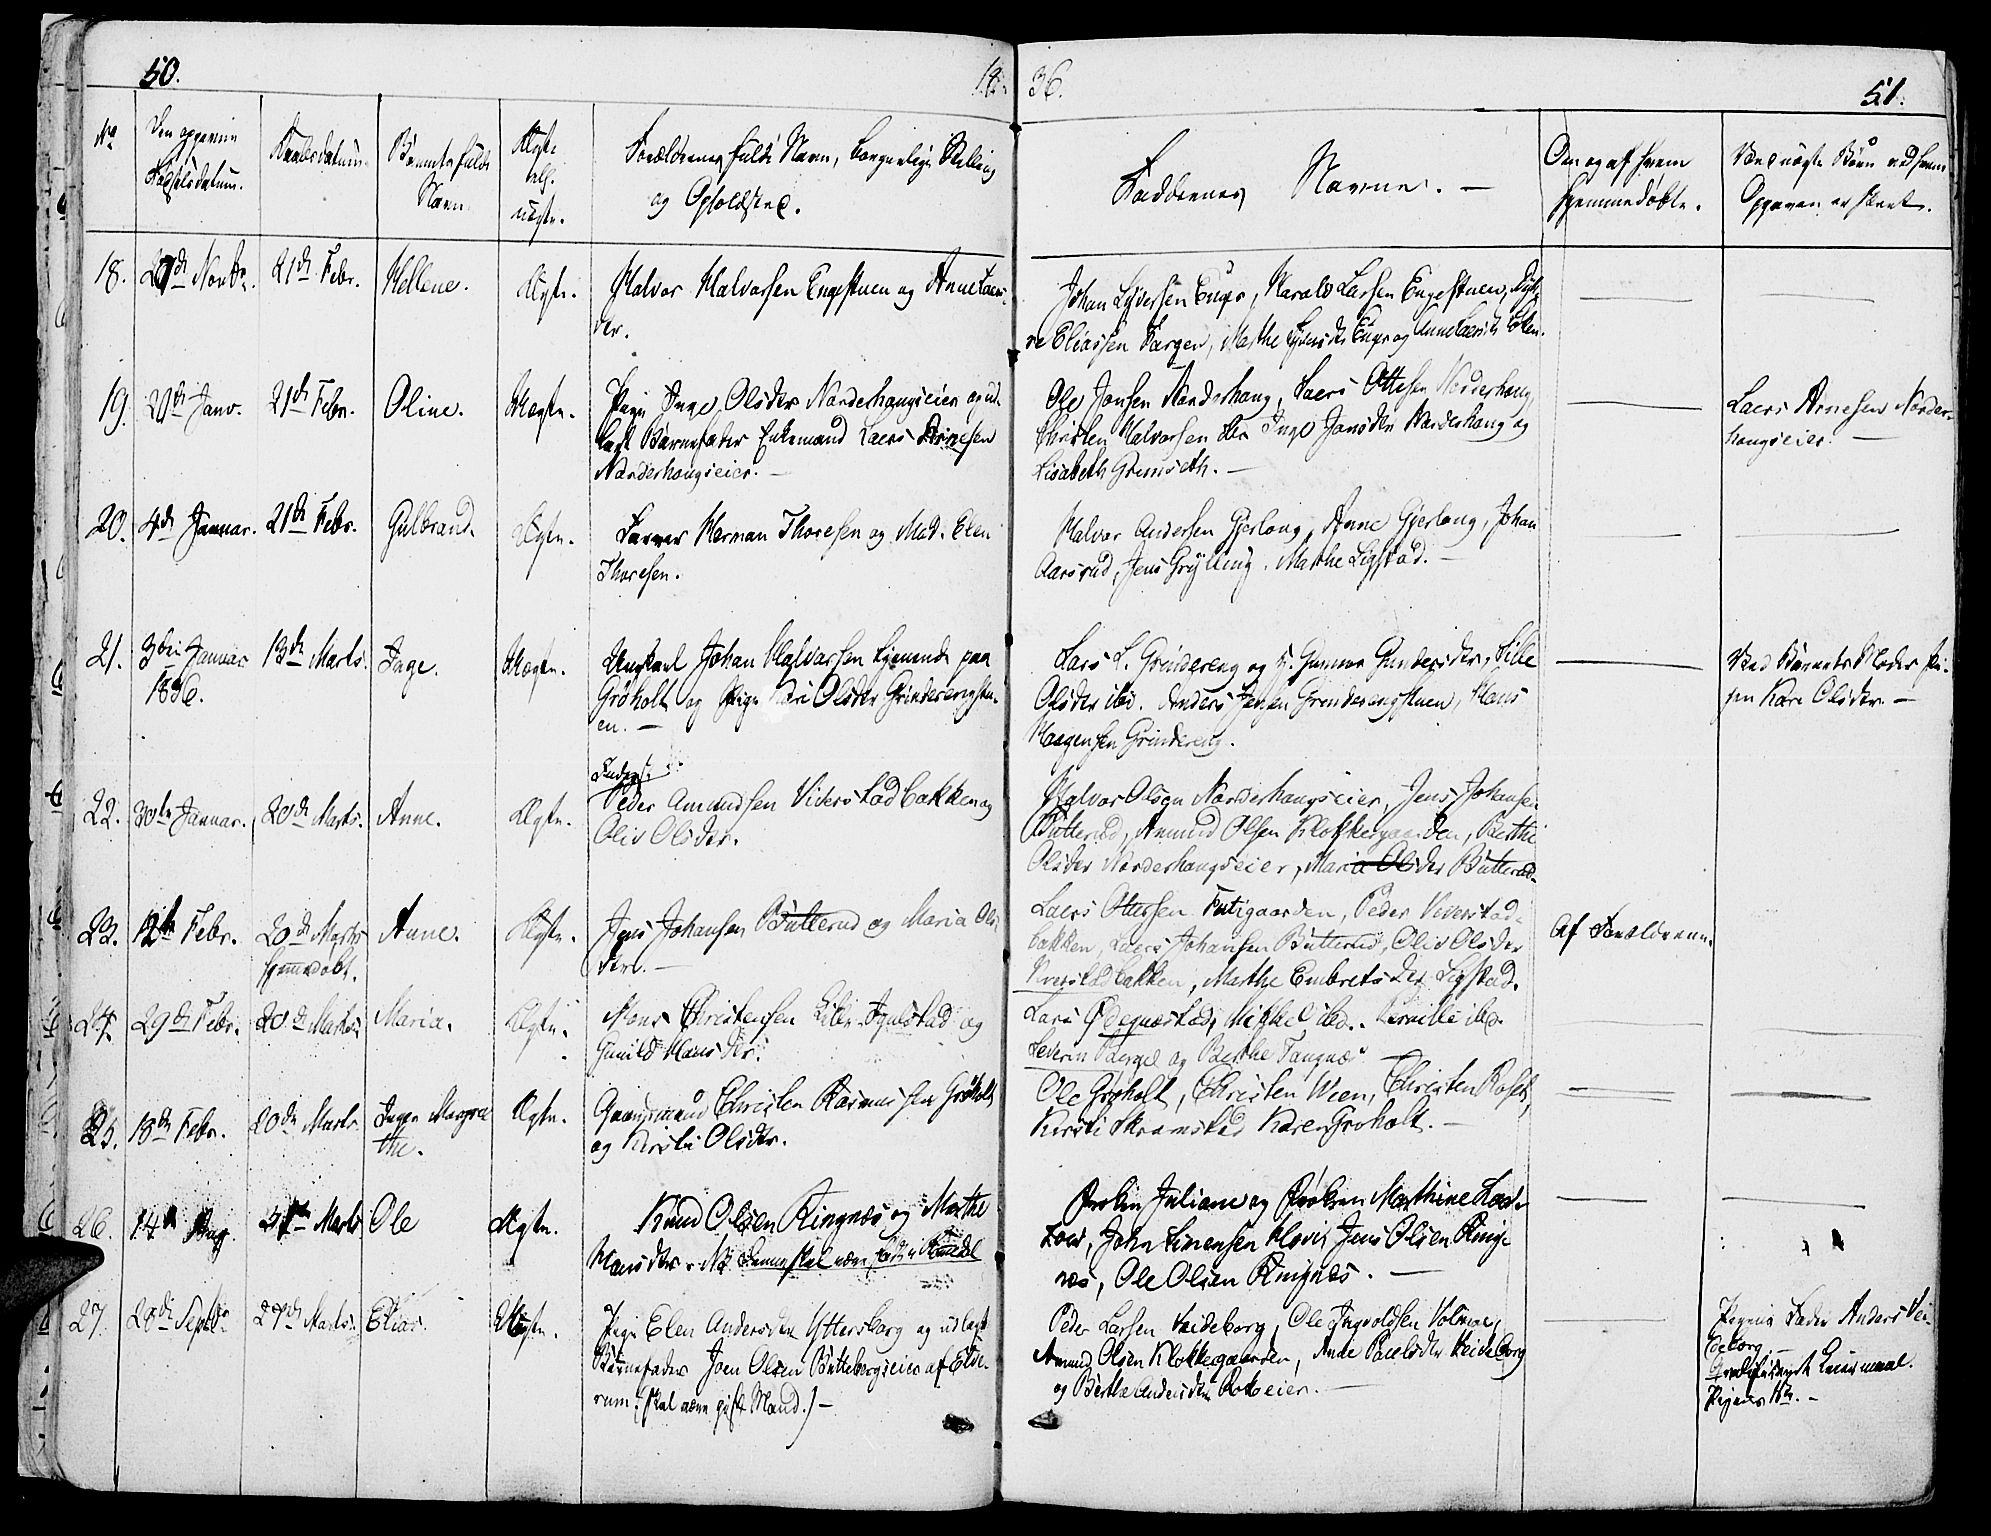 50.
18
36.
51.
No
Den opgivne Fødselsdatum.
Daabsdatum.
Barnets fulde Navn
Ægte ell. uægte.
Forældrenes fulde Navn, borgerlige Stilling
og Opholdsted.
Faddernes Navne. —
Om og af hvem
hjemmedøbte.
Ved uægte Børn ved hvem
Opgaven er skeet.
18. 27de Novbr. 21de Febr. Hellene. Ægte. Halvor Halvorsen Engestuen og Anne Laers-
der.
Johan Enger, Harald Larsen Engestuen,
Eliassen Marthe Enger og Anne
19. 20de Janv. 21de Febr. Oline. Uægte. Pige Inge Olsder Norderhougseier og ud-
lagt Barnefader Enkemand Laers Arnesen
Norderhougseier. —
Ole Jonsen Norderhoug, Laers Ottesen Norderhoug,
Christen Halvorsen ibd. Inge Jonsder Norderhoug og
Lisabeth Grimseth. —
Laers Arnesen Norder-
hougseier. —
20. 4de Januar. 21de Febr. Gulbrand. Ægte. Farver Herman Thoresen og Mad. Elen
Thoresen.
Halvor Andersen Gjerlaug, Anne Gjerlaug, Johan
Aarsrud, Jens Grylling. Marthe Ligstad. —
21. 3die Januar
1836.
13de Marts. Inge. Uægte. Ungkarl Johan Halvorsen tjenende paa
Grøholt og Pige Kari Olsder Grinderengstu-
en. —
Lars L. Grindereng og K. Gunnor Gundersder, Lille
Olsder ibd. Anders Jensen Grinderengstuen, Hans
Haagensen Grindereng.
Ved Barnets Moder Pi-
gen Kari Olsder. —
22. 30te Januar. 20de Marts. Anne. Ægte.
Inderst
Peder Amundsen Viverstadbakken og
Oliv Olsder.
Halvor Olsen Norderhougseier, Jens Johansen
Butterud, Amund Olsen Klokkergaarden, Berthe
Olsder Norderhougseier, Maria Olsder Butterud.
23. 12te Febr. 20de Marts
hjemmedøbt.
Anne. Ægte. Jens Johansen Butterud og Maria Ols-
der. —
Laers Ottersen Futigaarden, Peder Viverstad-
bakken, Laers Johansen Butterud, Oliv Olsder
Viverstadbakken, Marthe Embretsder Ligstad.
Af Forældrene.
24. 29de Febr. 20de Marts. Maria. Ægte. Mons Christensen Lille Igulstad og
Gunild Hansder.
Lars Ødegaestad, Mikkel ibd. Pernille ibd.
Severin Berge og Berthe Tangnæs
25. 18de Febr. 20de Marts. Inger Margre-
the.
Ægte. Gaardmand Christen Rasmussen Grøholt
og Kirsti Olsdtr.
Ole Grøholt, Christen Wien, Christen Roset,
Kirsti Skramstad Karen Grøholt. —
26. 14de Aug. 27de Marts Ole Ægte. Knud Olsen Ringnæs og Marthe
Hansdtr. NB denne skal være født i
Frøken Juliane og Frøken Mathine
John Simensen Hovi, Jens Olsen Ring-
næs, Ole Olsen Ringnæs. —
27. 28de Septbr. 27de Marts. Elias. Uægte. Pige Elen Andersder Yttersborg og udlagt
Barnefader Joen Olsen Buttebergseier af Elve-
rum. (skal være gift Mand.) —
Peder Larsen Heideborg, Ole Ingvoldsen Volmoe,
Amund Olsen Klokkergaarden, Anne Poulsdtr Heideborg
og Berthe Andersder Rokoeier. —
Pigens Fader Anders Hei-
deborg. —
Leiermaal.
Pigens